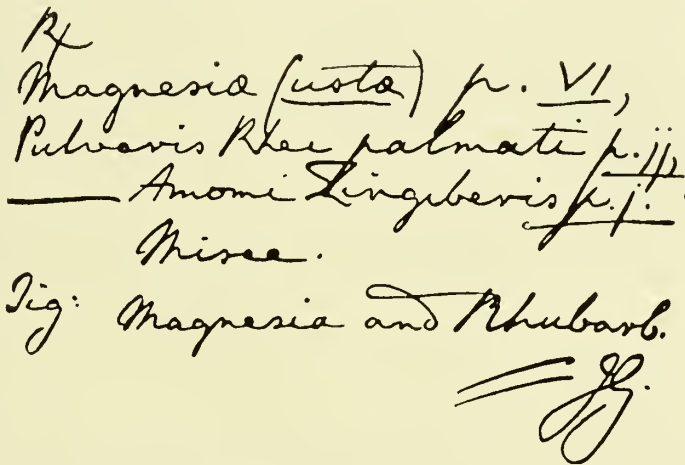 ℞
Magnesiæ (ustæ) p. VI,
Pulveris Rhei palmati p. ij,
—— Amomi Zingiberis p. j.
Misce.
Sig: Magnesia and Rhubarb.
JG.